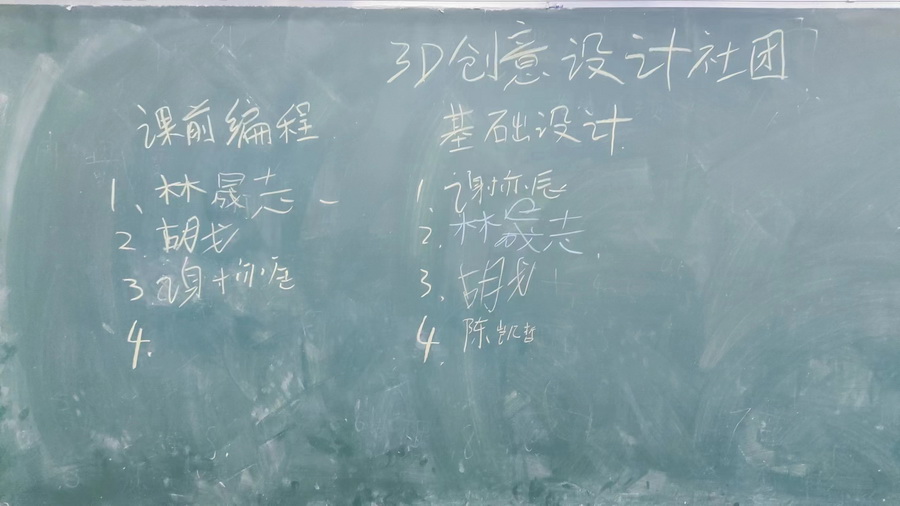 3D创意设计社团
课前编程
1、林晟志
2.胡戈
3.谢
4.
基础设计
1.谢
2.林晟志
3.胡戈
4.陈凯哲